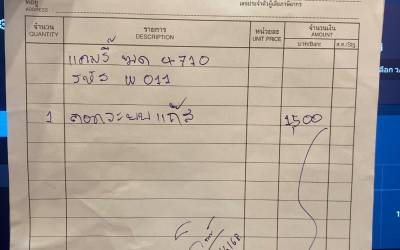 ที่อยู่
ADDRESS
เลขประจำตัวผู้เสียภาษีอากร
จำนวน
QUANTITY
รายการ
DESCRIPTION
หน่วยละ
UNIT PRICE
จำนวนเงิน
AMOUNT
บาท/Baht
ส.ต./Stg.
แคมรี่ ฆด 4710
รหัส W 011
1 ลอกวะบบแก๊ส 1,500